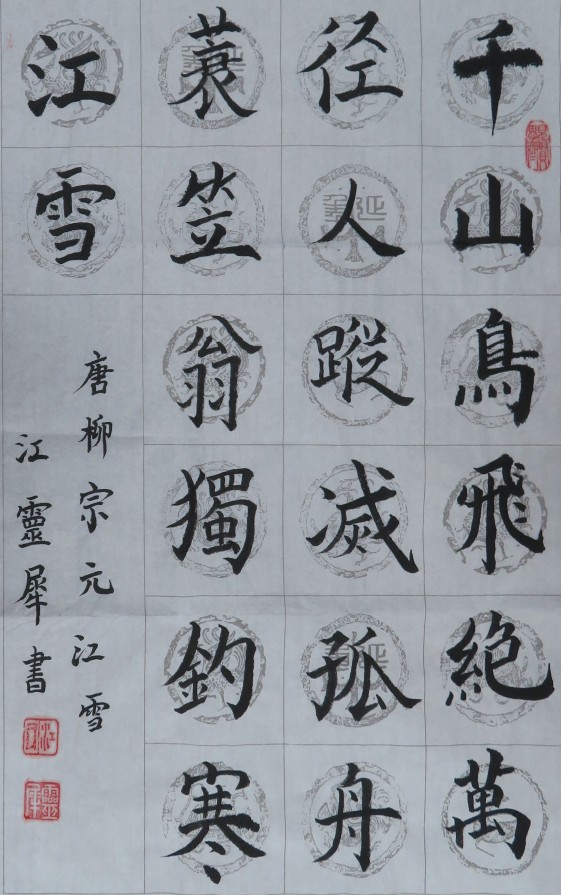 千山鳥飛絶萬
径人蹤滅孤舟
蓑笠翁獨釣寒
江雪
唐柳宗元江雪
江靈犀書